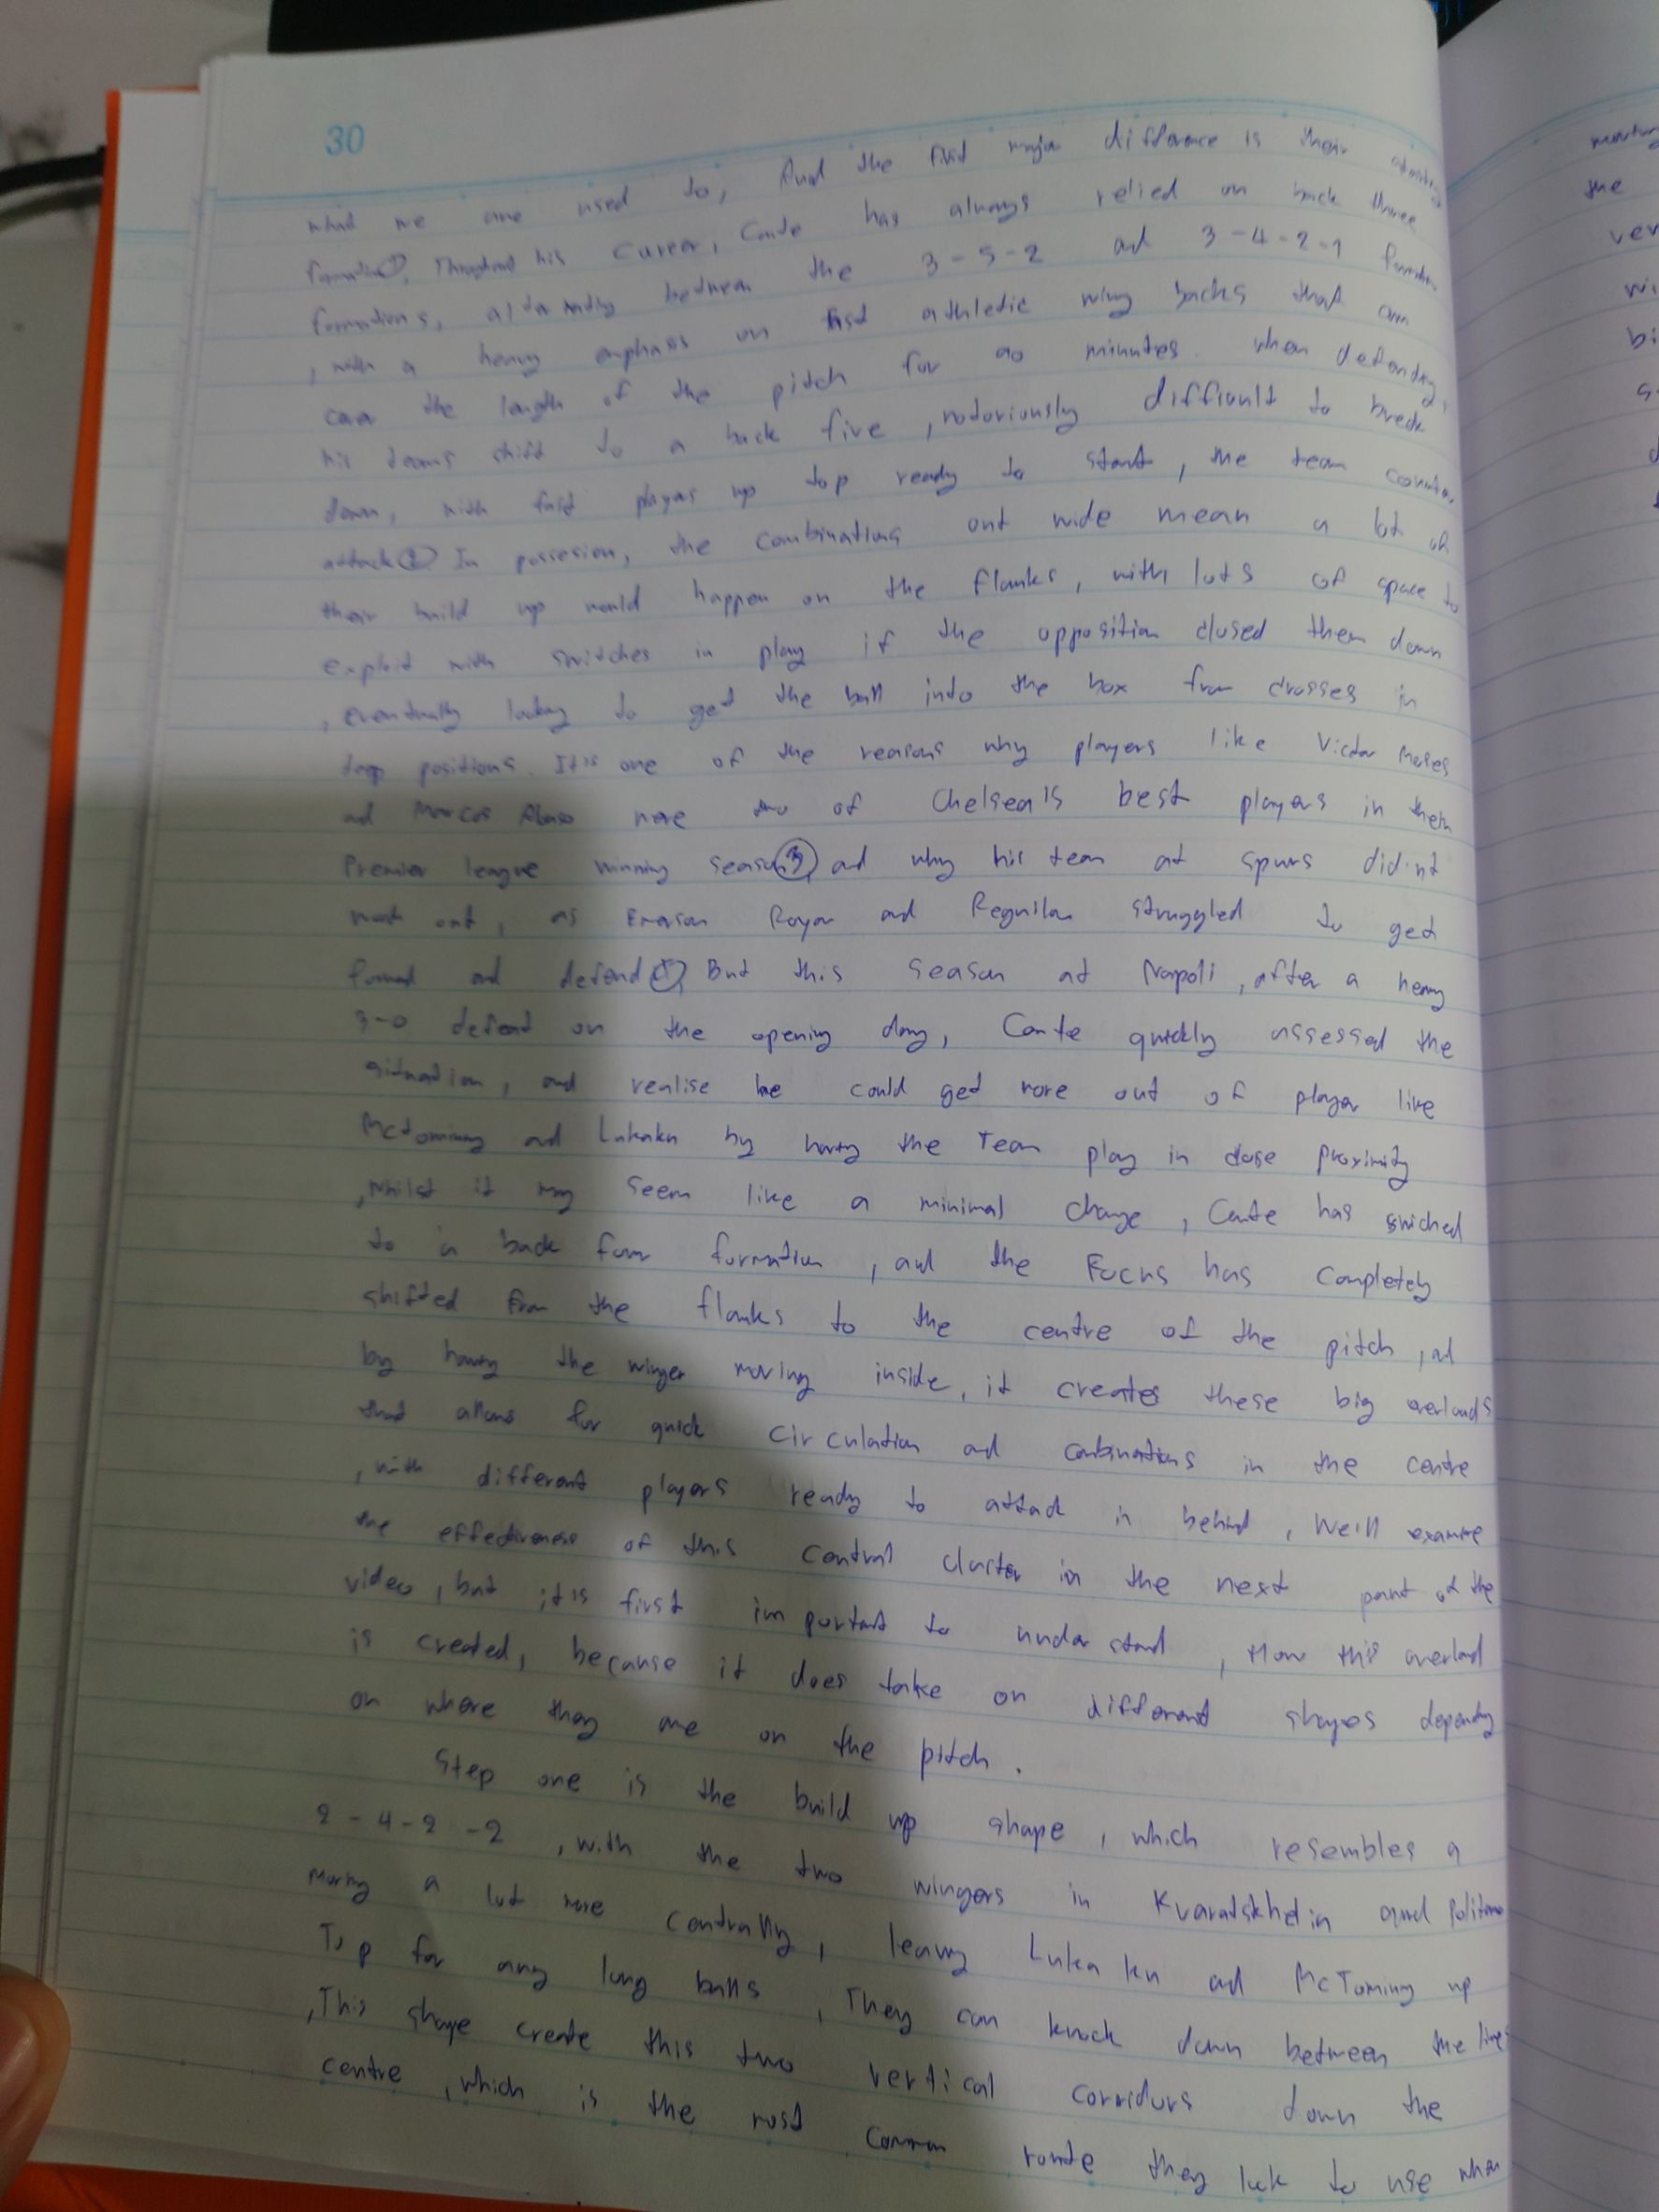 30
what we are used to, And the first major difference is their
formation①. Throughout his career, Conte has always relied on back three
formations, alternating between the 3-5-2 ad 3-4-2-1
, with a heavy emphasis on fast athletic wing backs that can
cover the length of the pitch for 90 minutes. When defending,
his teams shift to a back five, notoriously difficult to break
down, with fast players up top ready to start, the team counter
attack② In possesion, the combinations out wide mean a lot of
their build up would happen on the flanks, with lots of space to
exploit with switches in play if the opposition closed them down
, eventually looking to get the ball into the box from crosses in
deep positions. It is one of the reasons why players like Victor Moses
ad Marcos Alonso were two of Chelsea's best players in them
Premier league winning season③, ad why his team at spurs did'nt
work out, as Emerson Royan ad Reguilon struggled to get
forward ad defend④, But this season at Napoli, after a heavy
3-0 defeat on the opening day, Conte quickly assessed the
situation, and realise he could get more out of player like
McTominay ad Lukaku by having the Team play in close proximity
,Whilst it may seem like a minimal change, Conte has swiched
to a back four formation, and the Focus has completely
shifted from the flanks to the centre of the pitch, ad
by having the winger moving inside, it creates these big overloads
that allows for quick circulation ad combinations in the centre
, with different players ready to attack in behind, We'll examine
the effectiveness of this central cluster in the next part of the
video, but it is first important to understand, How this overload
is created, because it does take on different shapes depending
on where they are on the pitch.
Step one is the build up shape, which resembles a
2-4-2-2, with the two wingers in Kvaratskhelia and Politano
Moving a lot more centrally, leaving Lukaku ad McTominay up
Top for any long balls, They can knock down between the lines
,This shape create this two vertical corridors down the
centre, which is the most common route they look to use when